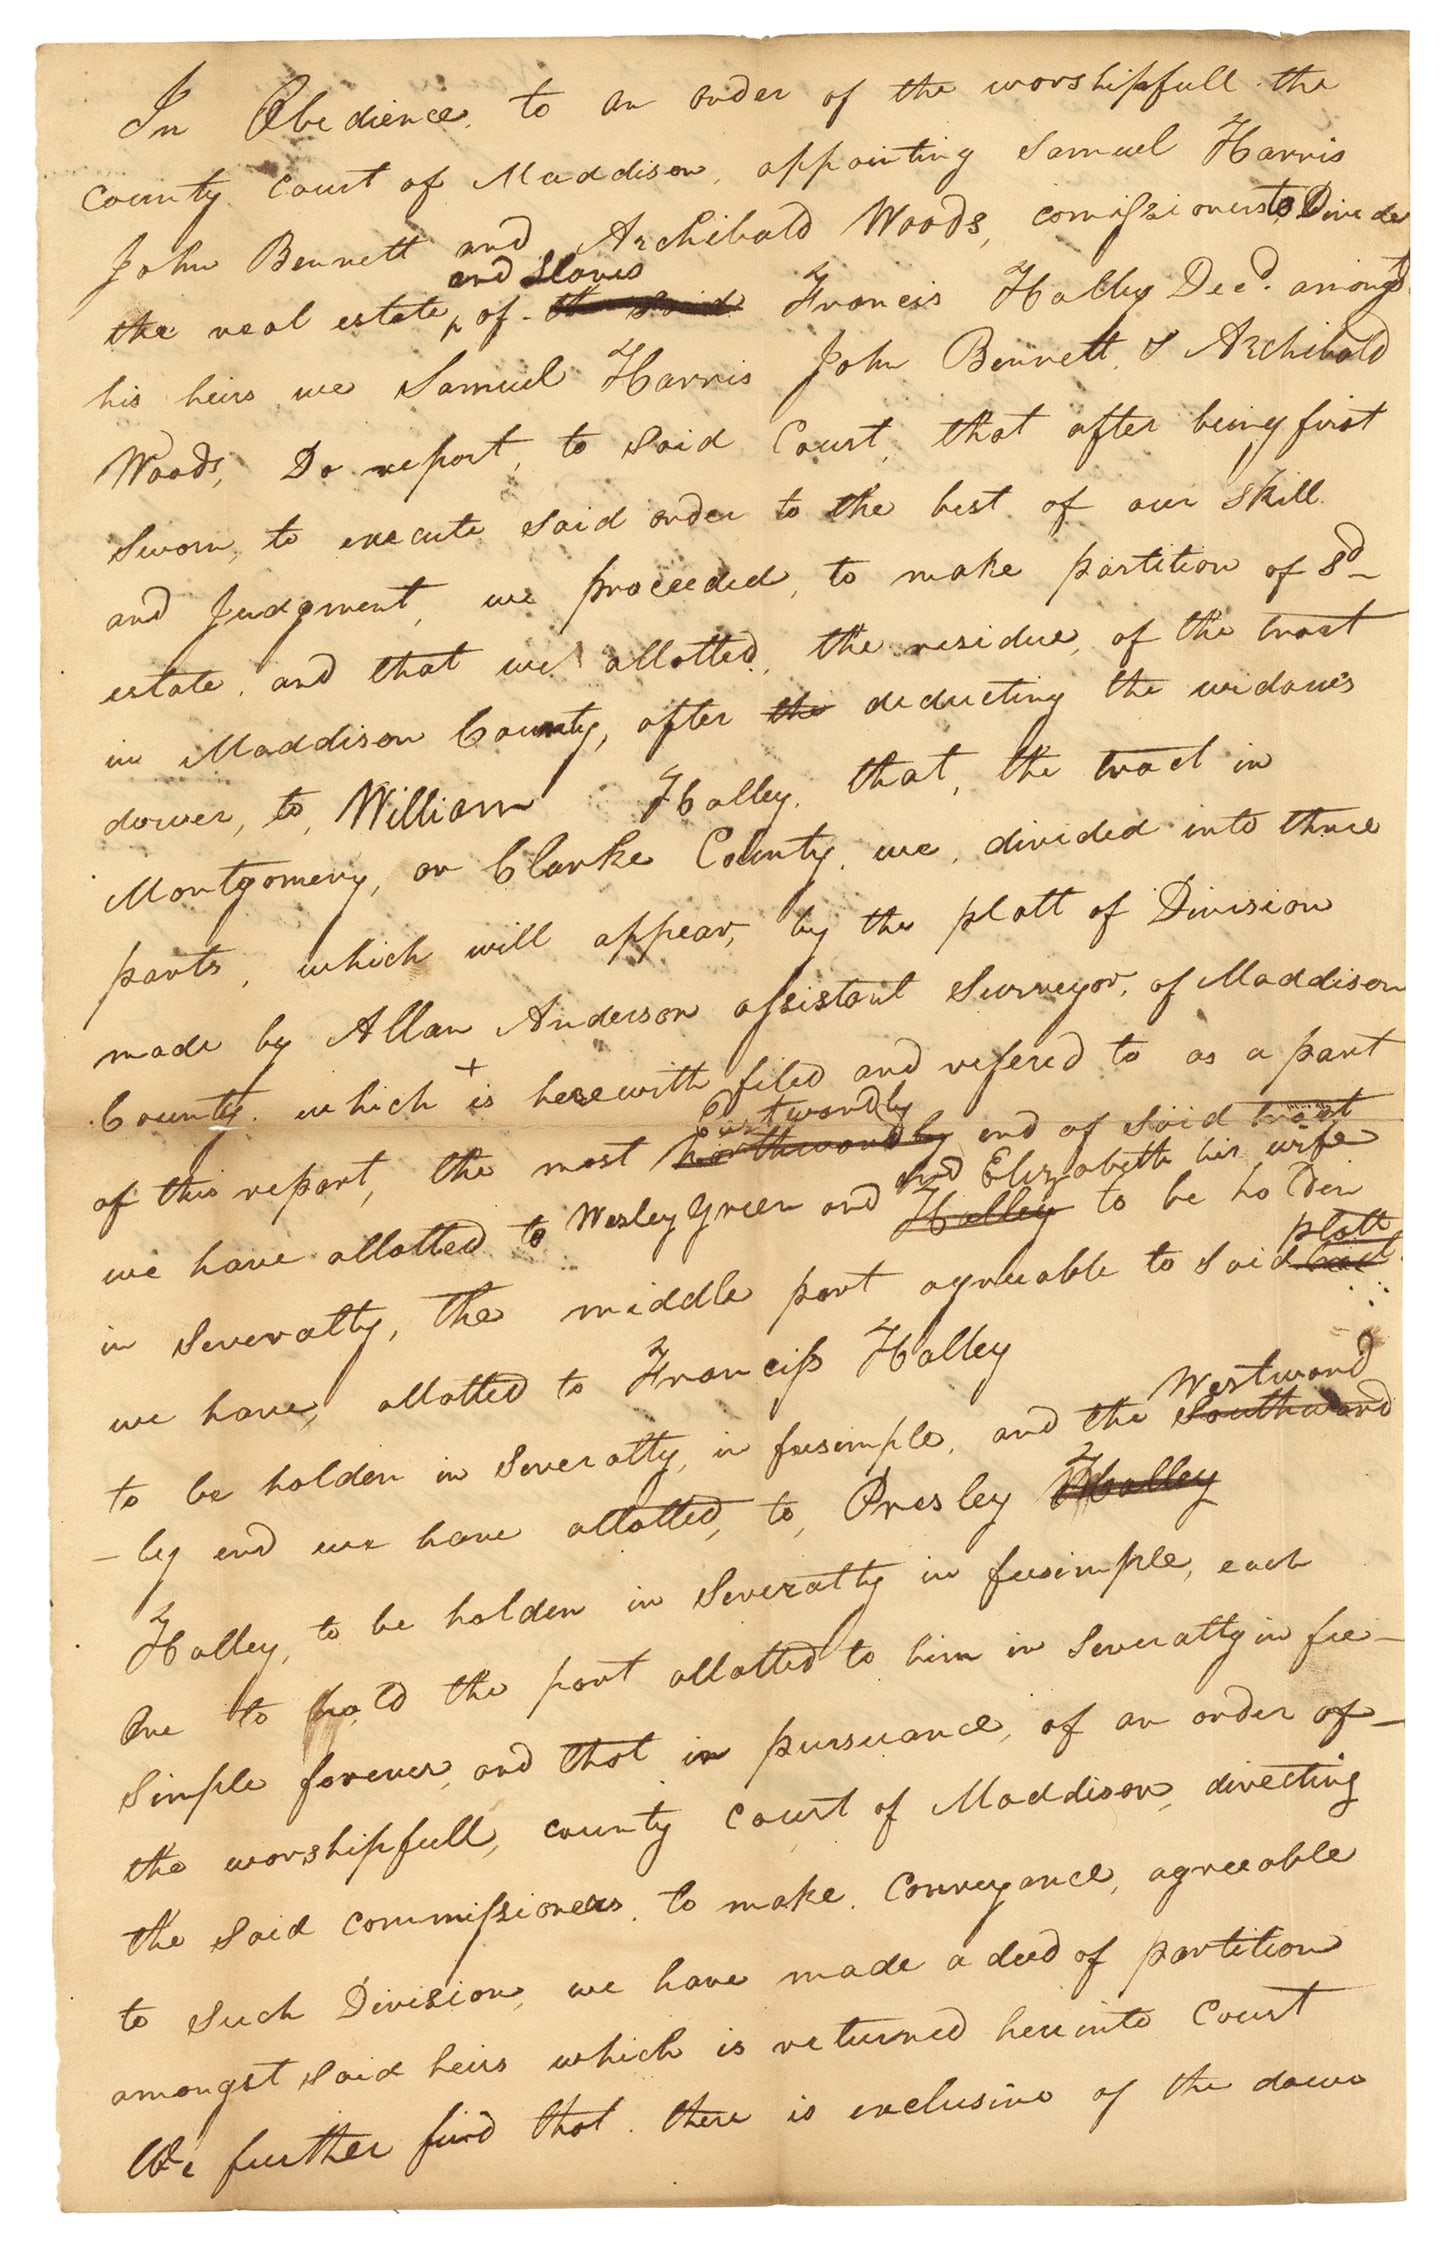 In Obedience to an order of the worshipfull the
county Court of Maddison, appointing Samuel Harris
John Bennett and Archibald Woods, comissioners to Divide
and Slaves
the real estate, of the said Francis Halley Decd. amongst
his heirs we Samuel Harris John Bennett, & Archibald
Woods, Do report, to said Court, that after being first
Sworn, to execute said order to the best of our skill
and Judgment, we proceeded, to make partition of sd
estate, and that we allotted, the residue, of the tract
in Maddison County, after the deducting the widows
dower, to, William Halley, that, the tract in
Montgomery, or Clarke County, we, divided into three
parts, which will appear, by the platt of Division
made by Allan Anderson assistant Surveyor, of Maddison
County. which is herewith filed and refered to as a part
Eastwardly
of this report, the most Northwardly end of said tract
and Elizabeth his wife
we have allotted to Wesley Green and Halley to be holden
platt
in Severalty, the middle part agreeable to said tract
we have, allotted to Franciss Halley
Westward
to be holden in Severalty, in feesimple, and the Southward
-ly end we have allotted, to, Presley Halley
Halley, to be holden in Severalty in feesimple, each
One to hold the part allotted to him in Severalty in fee-
Simple forever, and that in pursuance, of an order of-
the worshipfull, county Court of Maddison, directing
the said commissioners, to make, Conveyance, agreeable
to such Division, we have made a deed of partition
amongst said heirs which is returned hereinto Court
We further find that there is exclusive of the dowe